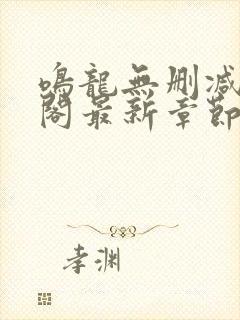 鳴龍無刪減
閣最新章節
李渊